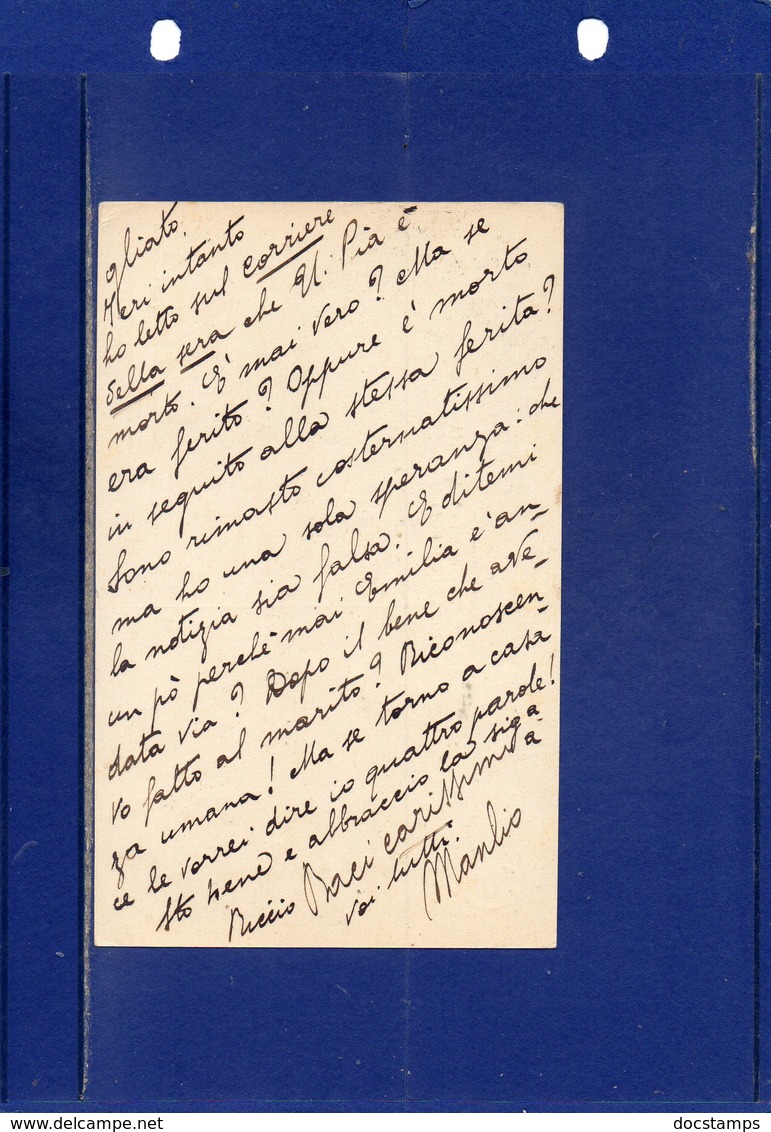 gliato.
Ieri intanto
ho letto sul Corriere
della sera che U. Pia è
morto. E' mai vero? Ma se
era ferito? Oppure è morto
in seguito alla stessa ferita?
Sono rimasto costernatissimo
ma ho una sola speranza: che
la notizia sia falsa. E ditemi
un pò perchè mai Emilia è an-
data via? Dopo il bene che ave-
vo fatto al marito? Riconoscen-
za umana! Ma se torno a casa
ce le vorrei dire io quattro parole!
Sto bene e abbraccio la sig.a
Riccio Baci carissimi a
voi tutti.
Manlio
delcampe.net
docstamps